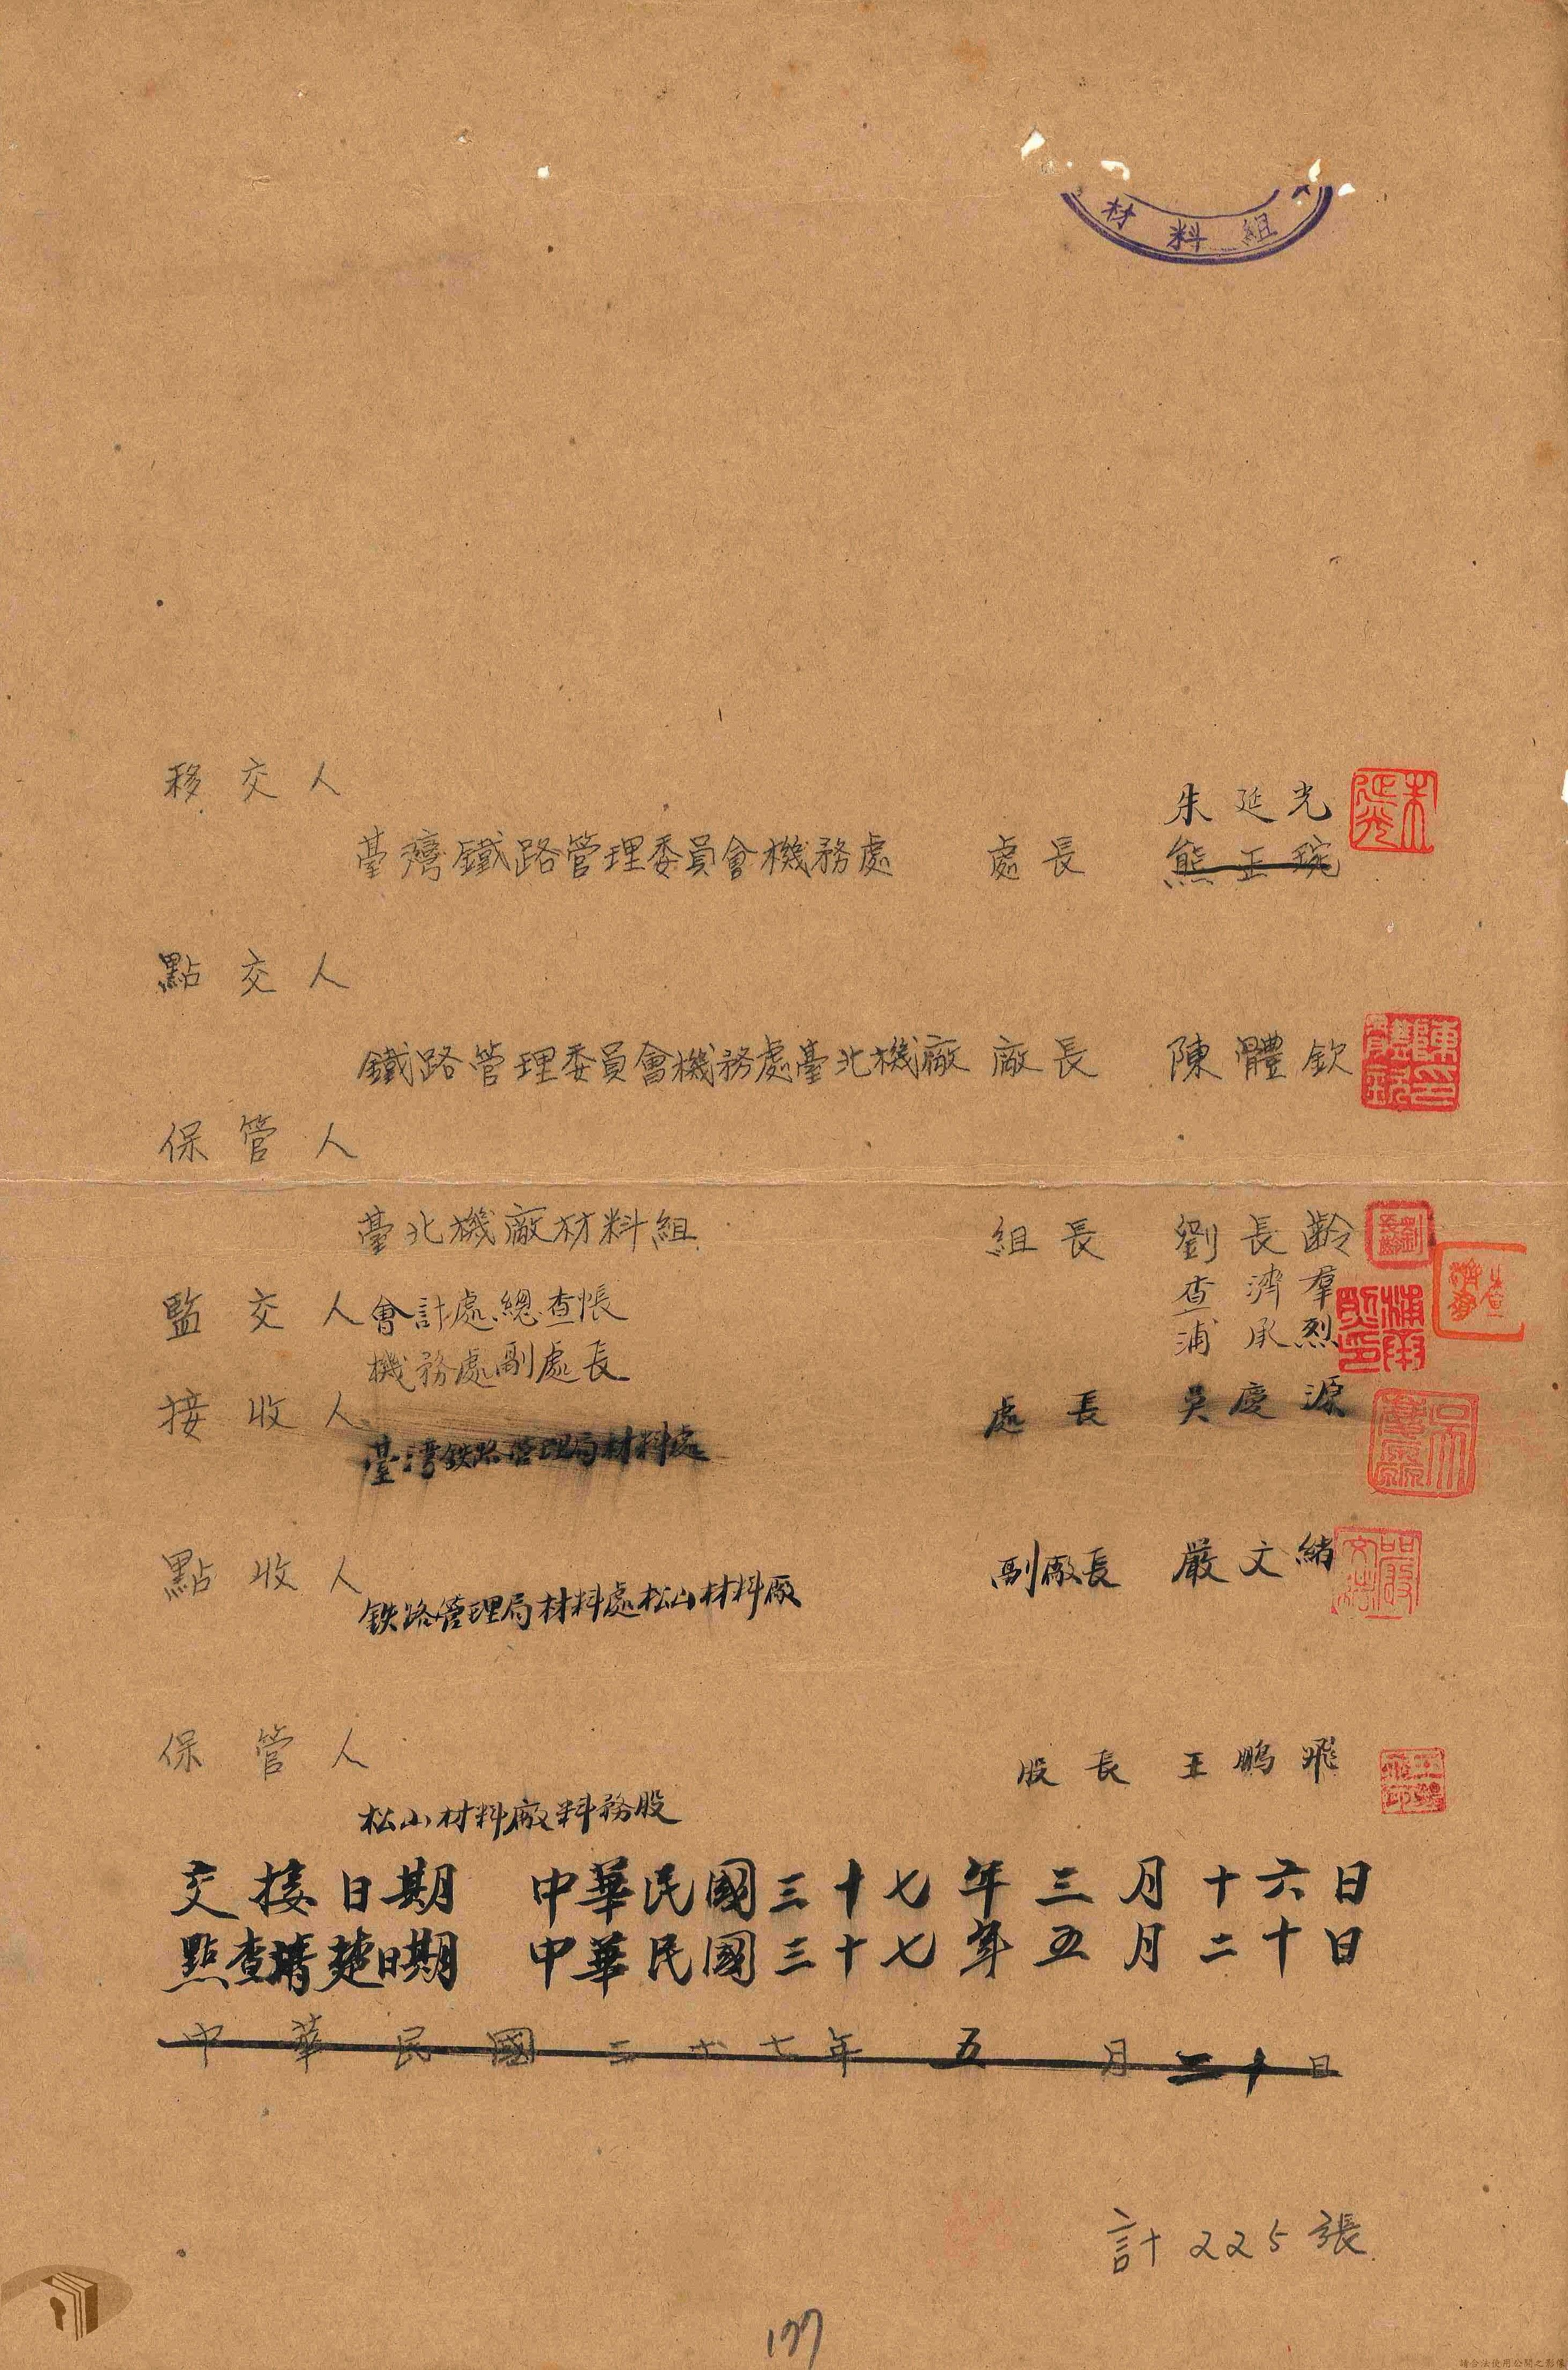 材料組
移交人
朱延光
臺灣鐵路管理委員會機務處 處長 熊正琬
點交人
鐵路管理委員會機務處臺北機廠 廠長 陳體欽
保管人
臺北機廠材料組 組長 劉長齡
監交人 會計處總查帳 查濟羣
機務處副處長 浦承烈
接收人 處長 吳慶源
臺灣鉄路管理局材料處
點收人 副廠長 嚴文緒
鉄路管理局材料處松山材料廠
保管人 股長 王鵬飛
松山材料廠料務股
交接日期 中華民國三十七年三月十六日
點查清楚日期 中華民國三十七年五月二十日
中華民國三十七年五月二十日
計225張
177
請合法使用公開之影像